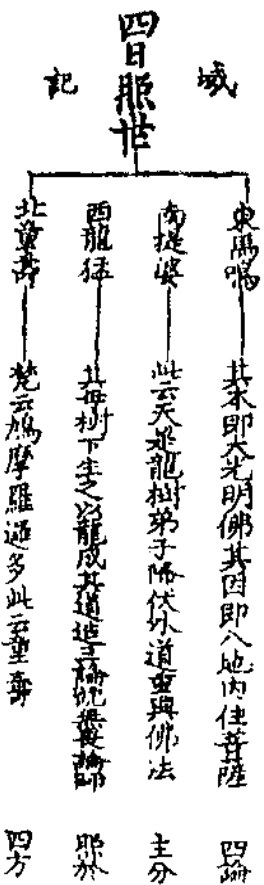 域
記
四日照世
東馬鳴 其本即大光明佛其因即八地内住菩薩 四論
南提婆 此云天是龍樹弟子降伏外道重興佛法 主分
西龍猛 其母樹下生之以龍成其道造三論說 論師 耶於
北童壽 梵云鳩摩羅邏多此云童壽 四方